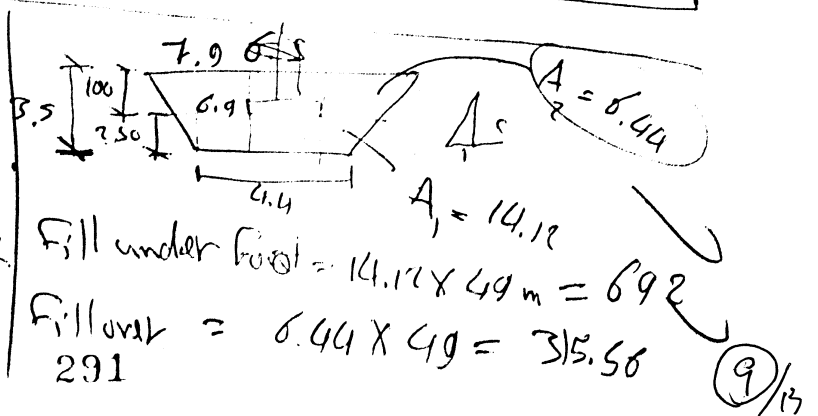 7.9
100
3.5
6.9
2.50
4.4
A₂ = 6.44
A₁ = 14.12
Fill under = 14.12 X 49 m = 692
Fill over = 6.44 X 49 = 315.56
291
9/13